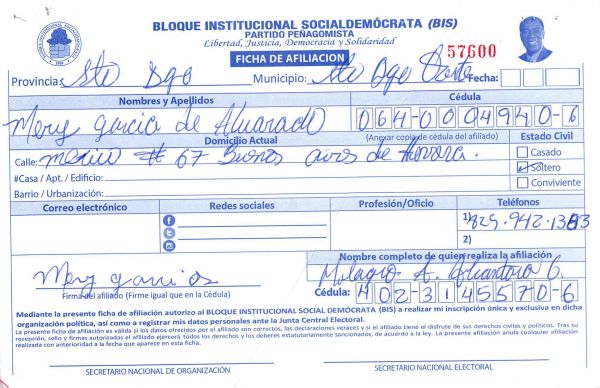 BLOQUE INSTITUCIONAL SOCIALDEMÓCRATA (BIS)
PARTIDO PEÑAGOMISTA
Libertad, Justicia, Democracia y Solidaridad
FICHA DE AFILIACION
57600
Provincia: Sto Dgo Municipio: Sto Dgo Oeste Fecha:
Nombres y Apellidos Cédula
Mery Garcia de Alvarado 064-0094940-6
Domicilio Actual (Anexar copia de cédula del afiliado) Estado Civil
Calle: # 67 Buenos de Herrera. Casado
#Casa / Apt. / Edificio: Soltero
Barrio / Urbanización: Conviviente
Correo electrónico Redes sociales Profesión/Oficio Teléfonos
1)
2)
Nombre completo de quien realiza la afiliación
Mery Milagro A.
Firma del afiliado (Firme igual que en la Cédula) Cédula: 402-3145570-6
Mediante la presente ficha de afiliación autorizo al BLOQUE INSTITUCIONAL SOCIAL DEMÓCRATA (BIS) a realizar mi inscripción única y exclusiva en dicha
organización política, así como a registrar mis datos personales ante la Junta Central Electoral.
La presente ficha de afiliación es válida si los datos ofrecidos por el afiliado son correctos, las declaraciones veraces y si el afiliado tiene el disfrute de sus derechos civiles y políticos. Tras su
recepción, sello y firmas autorizadas el afiliado ejercerá todos los derechos y los deberes estatutariamente sancionados, de acuerdo a la ley. La presente afiliación anula cualquier afiliación
realizada con anterioridad a la fecha que aparece en esta ficha.
SECRETARIO NACIONAL DE ORGANIZACIÓN SECRETARIO NACIONAL ELECTORAL